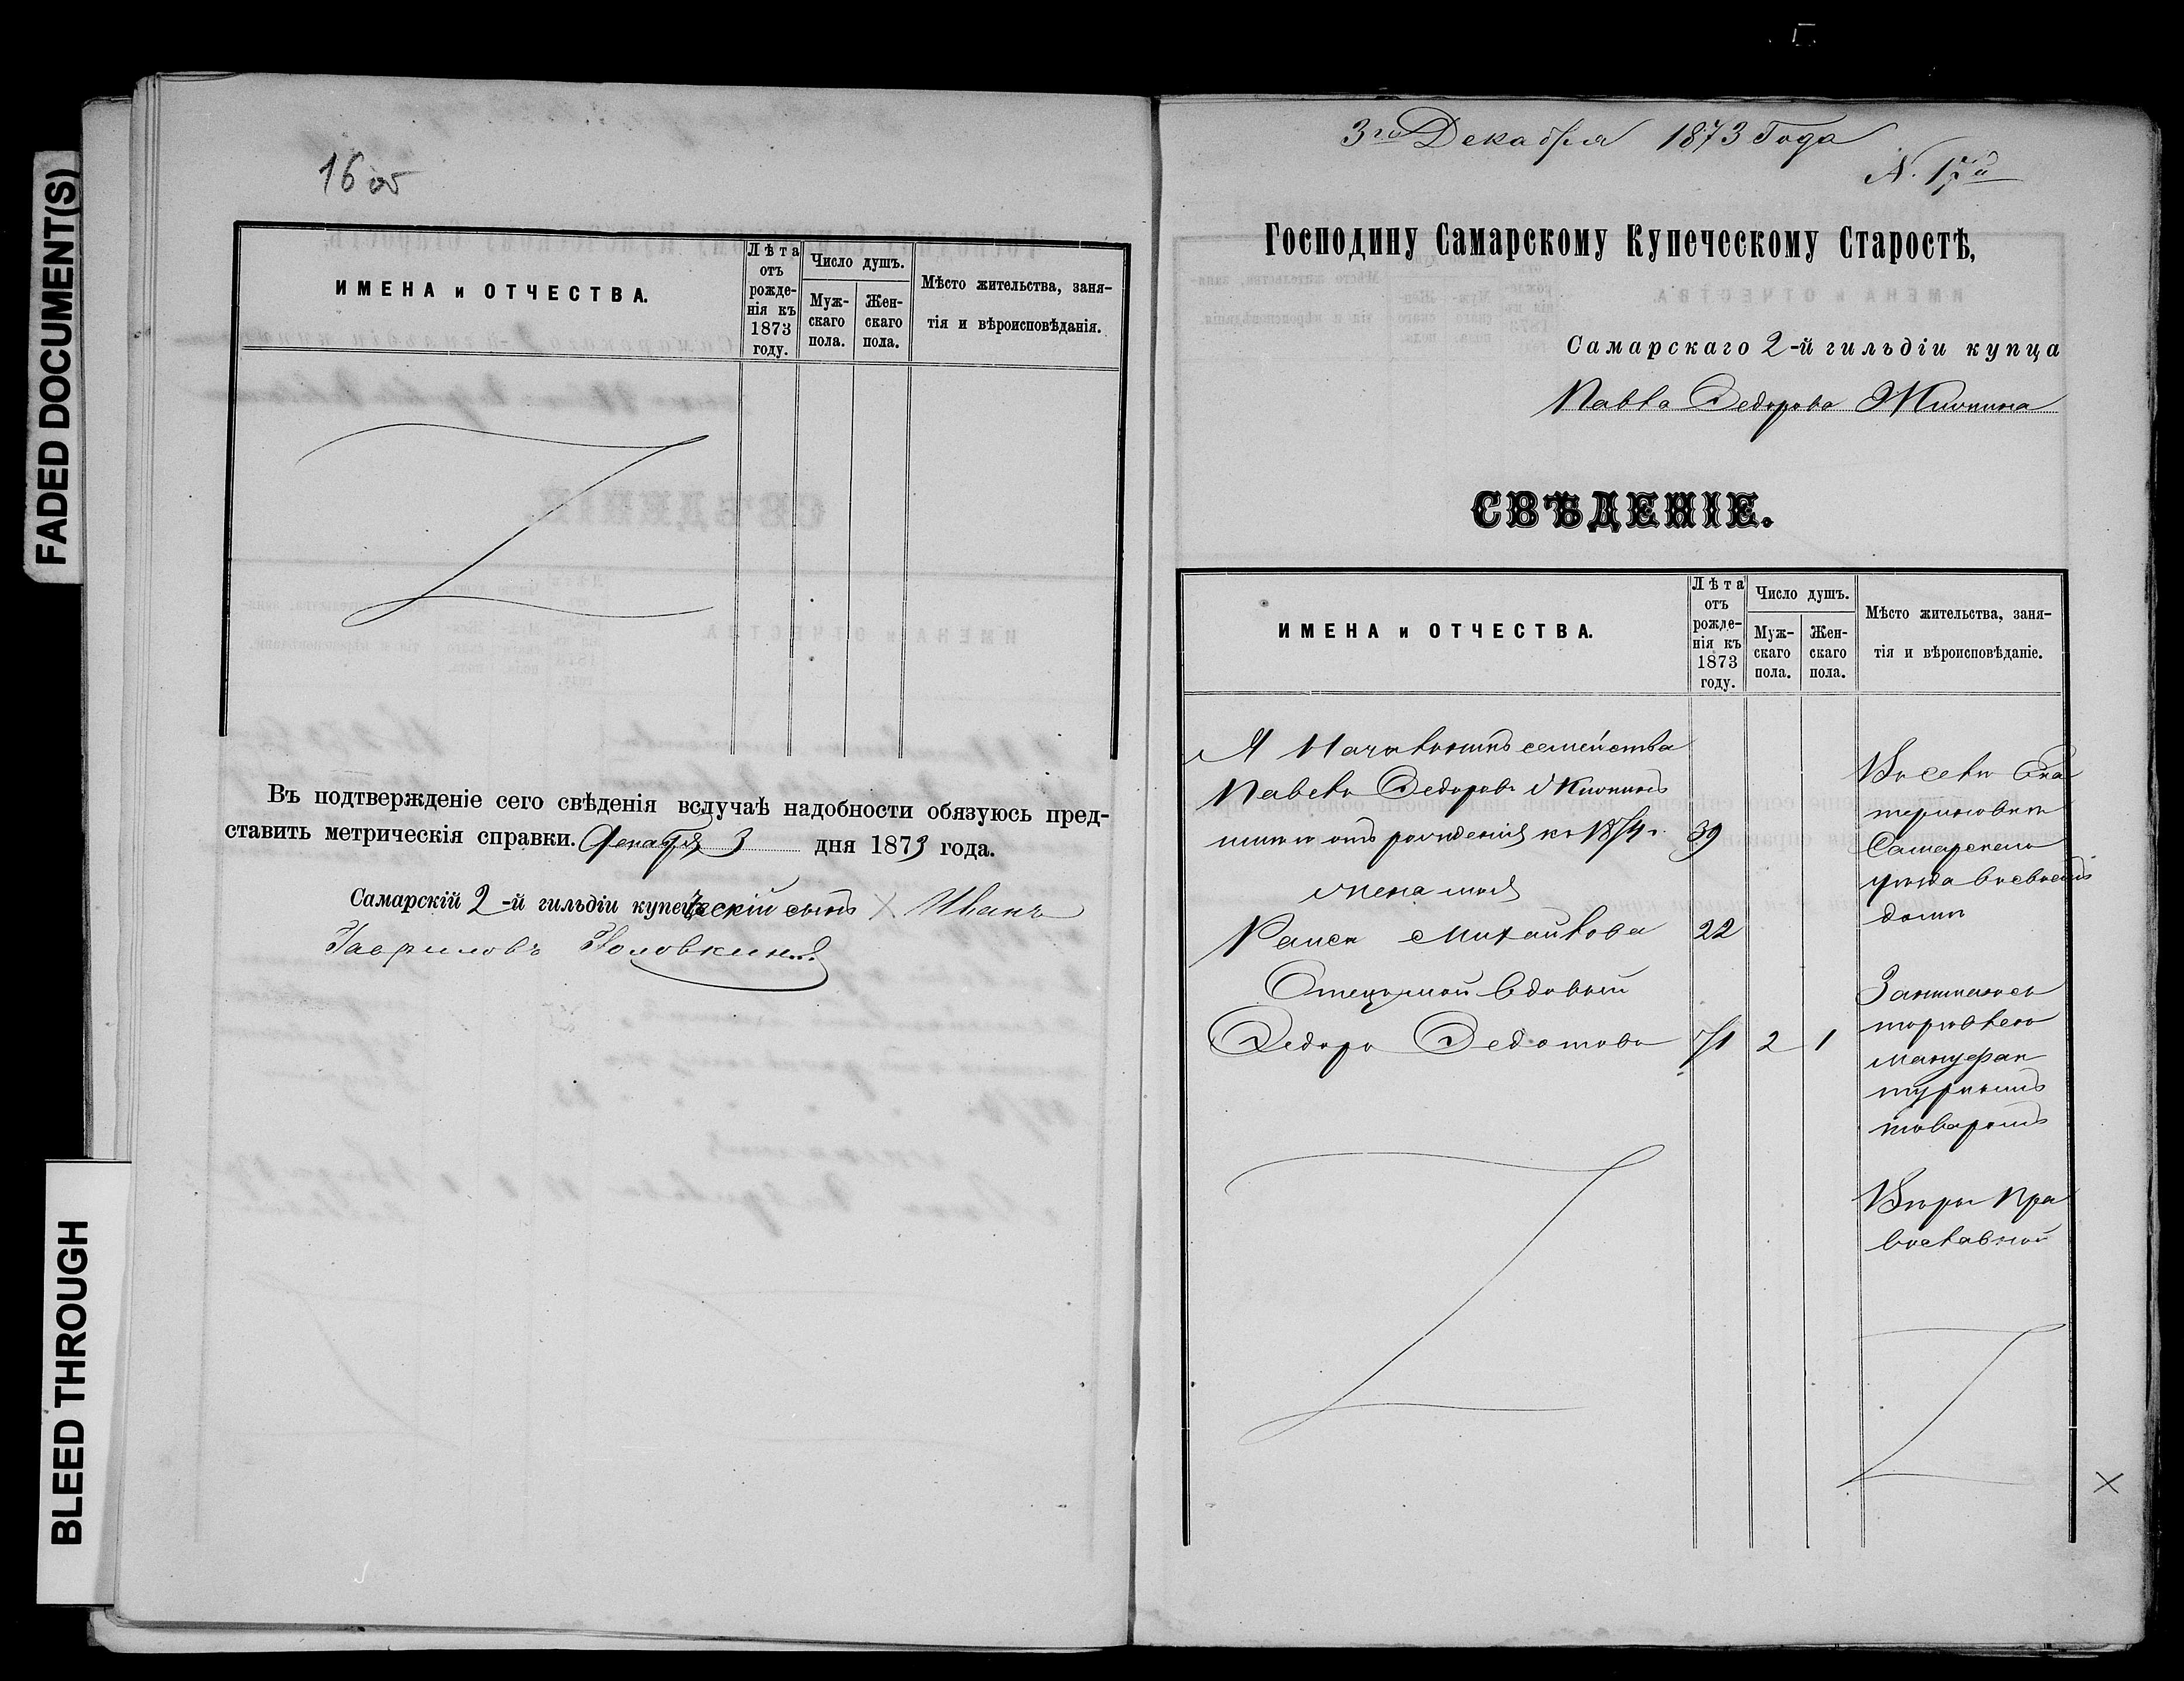 FADED DOCUMENT(S)
BLEED THROUGH
16 об
ИМЕНА и ОТЧЕСТВА.
Лѣта отъ рожде-нія къ 1873 году.
Число душъ.
Муж-скаго пола.
Жен-скаго пола.
Мѣсто жительства, заня-
тія и вѣроисповѣданія.
Въ подтвержденіе сего свѣденія вслучаѣ надобности обязуюсь пред-
ставить метрическія справки. Декабря 3 дня 1873 года.
Самарскій 2-й гильдіи купеческій сынъ Иванъ
Гавриловъ Головкинъ
3го Декабря 1873 Года
N. 17й
Господину Самарскому Купеческому Старостѣ,
Самарскаго 2-й гильдіи купца
Павла Федорова
СВѢДЕНІЕ.
ИМЕНА и ОТЧЕСТВА.
Лѣта отъ рожде-нія къ 1873 году.
Число душъ.
Муж-скаго пола.
Жен-скаго пола.
Мѣсто жительства, заня-
тія и вѣроисповѣданіе.
Я Начальникъ семейства
Павелъ Федоровъ
отъ рожденія къ 1874 г. 39
жена моя
Раиса Михайлова 22
Отецъ мой вдовый
Федоръ Федотовъ 71 2 1
Въ селѣ Ека
териновкѣ
Самарскаго
уѣзда
домѣ
Занимаюсь
торговлею
мануфак
турнымъ
товаромъ
Вѣры Пра
вославной